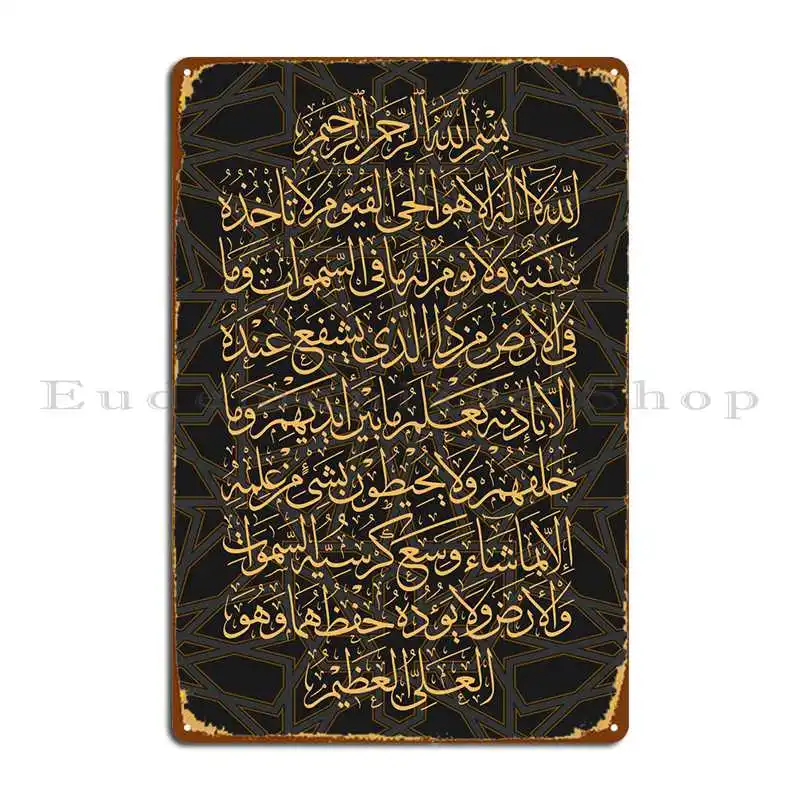 بِسْمِ اللَّهِ الرَّحْمَنِ الرَّحِيمِ
اللَّهُ لَا إِلَهَ إِلَّا هُوَ الْحَيُّ الْقَيُّومُ لَا تَأْخُذُهُ
سِنَةٌ وَلَا نَوْمٌ لَهُ مَا فِي السَّمَوَاتِ وَمَا
فِي الْأَرْضِ مَنْ ذَا الَّذِي يَشْفَعُ عِنْدَهُ
إِلَّا بِإِذْنِهِ يَعْلَمُ مَا بَيْنَ أَيْدِيهِمْ وَمَا
خَلْفَهُمْ وَلَا يُحِيطُونَ بِشَيْءٍ مِنْ عِلْمِهِ
إِلَّا بِمَا شَاءَ وَسِعَ كُرْسِيُّهُ السَّمَوَاتِ
وَالْأَرْضَ وَلَا يَؤُدُهُ حِفْظُهُمَا وَهُوَ
الْعَلِيُّ الْعَظِيمُ
Shop